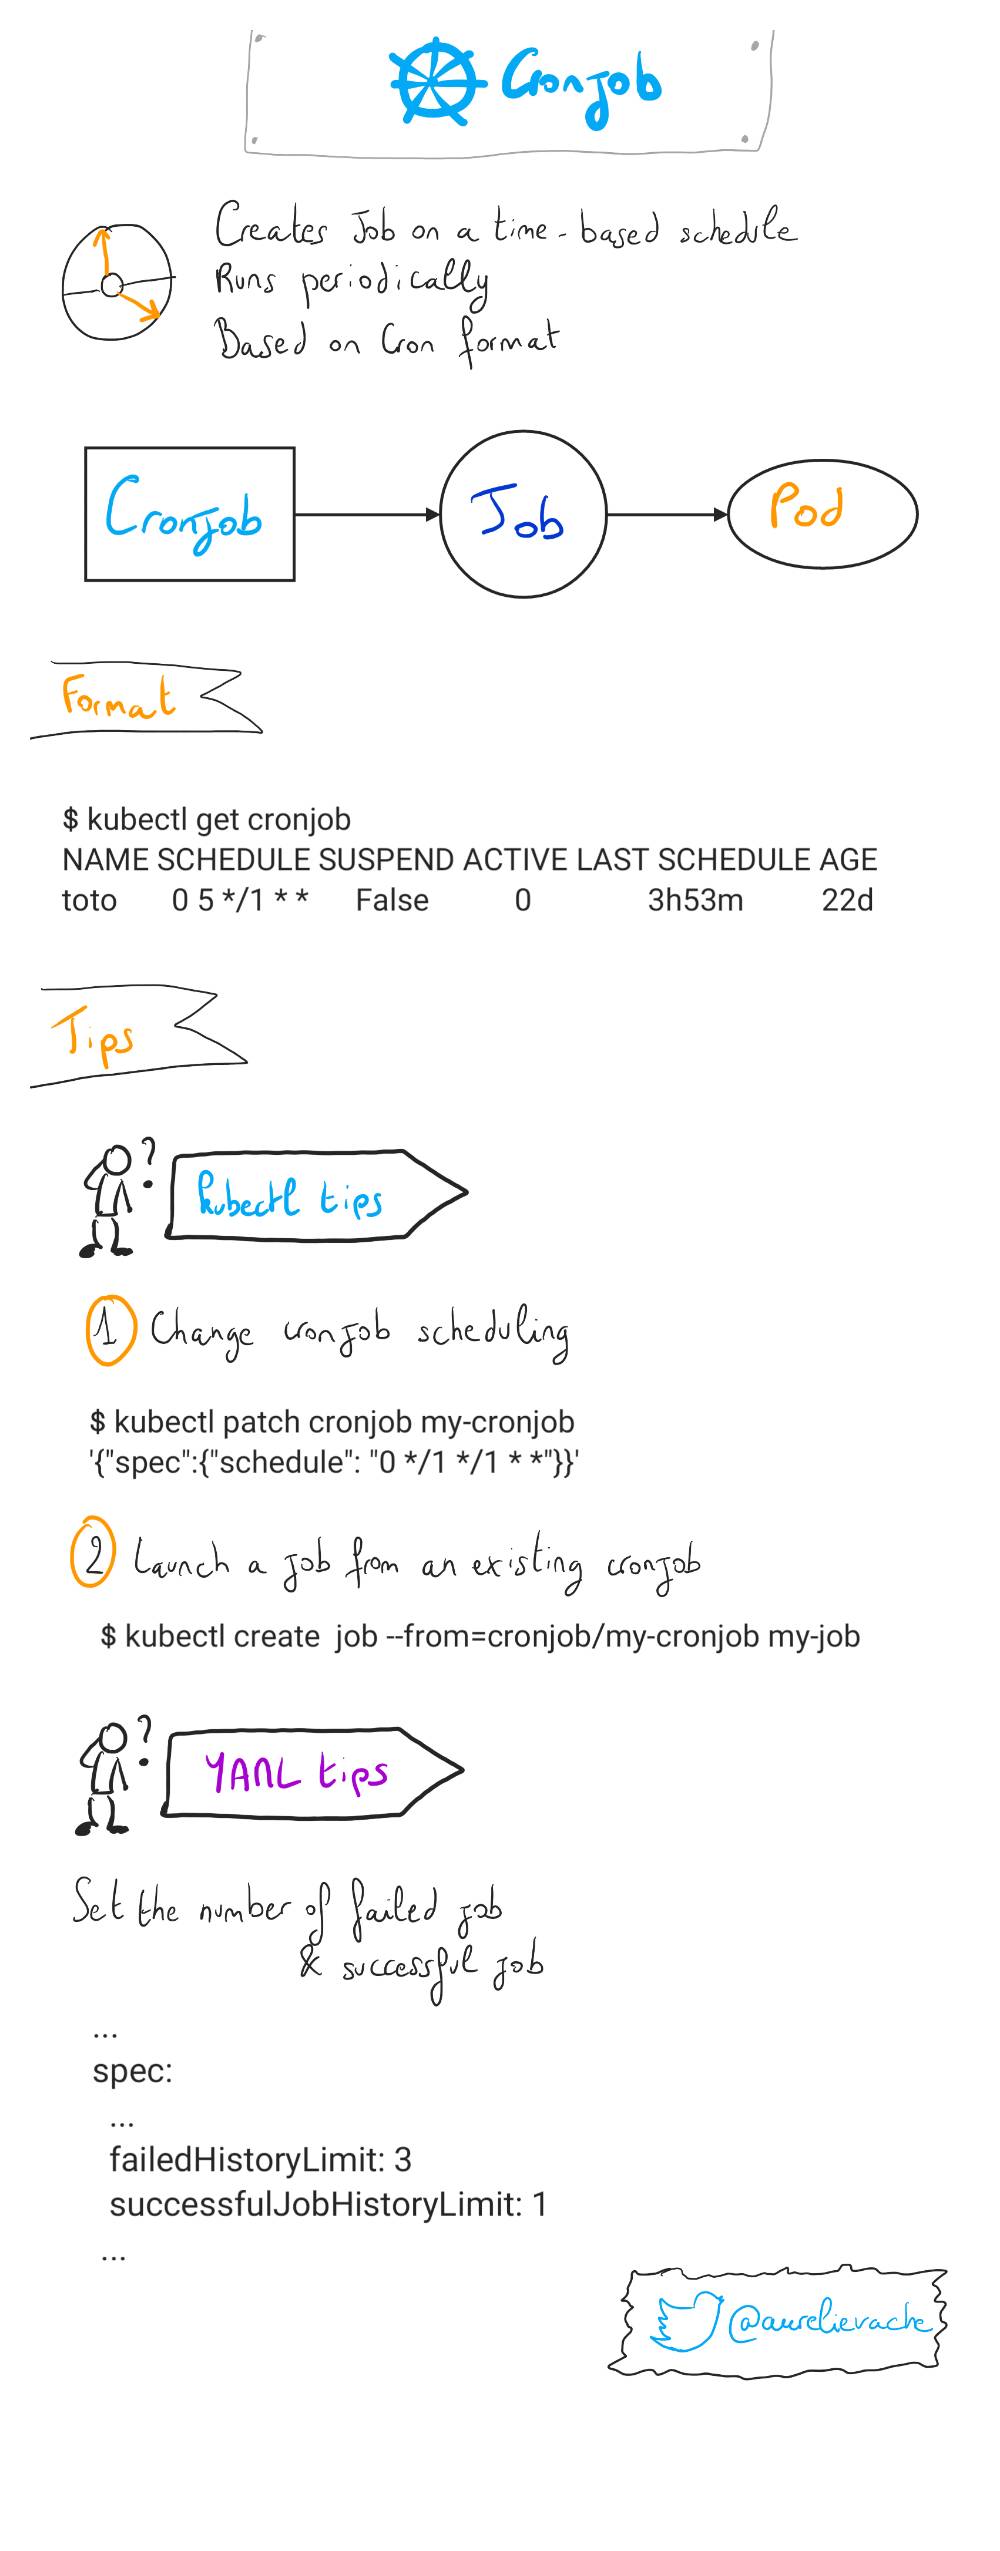 Cronjob
Creates Job on a time-based schedule
Runs periodically
Based on Cron format
Cronjob
Job
Pod
Format
$ kubectl get cronjob
NAME SCHEDULE SUSPEND ACTIVE LAST SCHEDULE AGE
toto 0 5 */1 * * False 0 3h53m 22d
Tips
?
kubectl tips
1 Change cronjob scheduling
$ kubectl patch cronjob my-cronjob
'{"spec":{"schedule": "0 */1 */1 * *"}}'
2 Launch a job from an existing cronjob
$ kubectl create job --from=cronjob/my-cronjob my-job
?
YAML tips
Set the number of failed job
& successful job
...
spec:
...
failedHistoryLimit: 3
successfulJobHistoryLimit: 1
...
@aurelievache